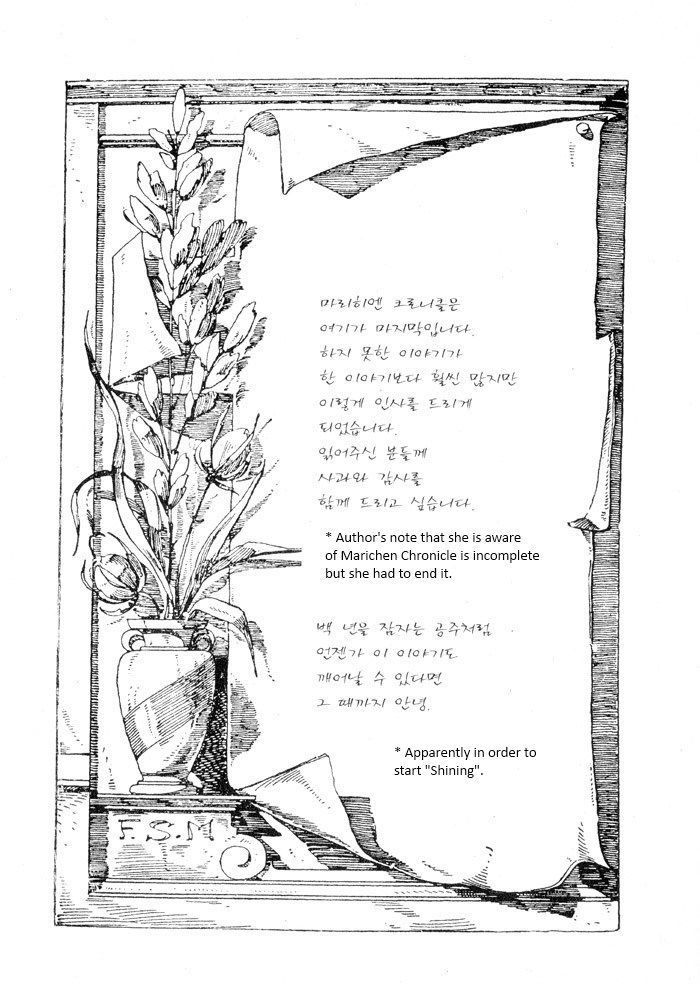 마리히엔 크로니클은
여기가 마지막입니다.
하지 못한 이야기가
한 이야기보다 훨씬 많지만
이렇게 인사를 드리게
되었습니다.
읽어주신 분들께
사과와 감사를
함께 드리고 싶습니다.
* Author's note that she is aware
of Marichen Chronicle is incomplete
but she had to end it.
백 년을 잠자는 공주처럼
언젠가 이 이야기도
깨어날 수 있다면
그 때까지 안녕.
* Apparently in order to
start "Shining".
F.S.M